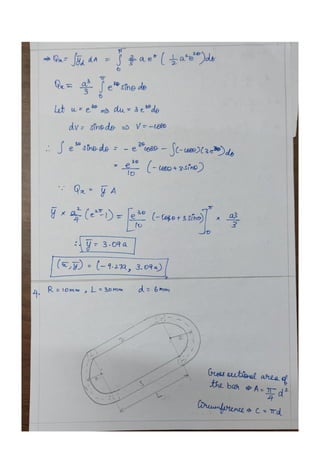 ⇒ Qx = ∫ȳel dA = ∫₀^π 2/3 a e^θ (1/2 a² e^2θ) dθ
Qx = a³/3 ∫₀^π e^3θ sinθ dθ
Let u = e^3θ ⇒ du = 3e^3θ dθ
dv = sinθ dθ ⇒ v = -cosθ
∴ ∫ e^3θ sinθ dθ = -e^3θ cosθ - ∫(-cosθ)(3e^3θ) dθ
= e^3θ/10 (-cosθ + 3sinθ)
∵ Qx = ȳ A
ȳ × a²/4 (e^2π - 1) = [e^3θ/10 (-cosθ + 3sinθ)]₀^π × a³/3
∴ ȳ = 3.09a
(x̄, ȳ) = (-9.27a, 3.09a)
4. R = 10mm, L = 30mm d = 6mm
L
Cross sectional area of
the bar ⇒ A = π/4 d²
Circumference ⇒ C = πd